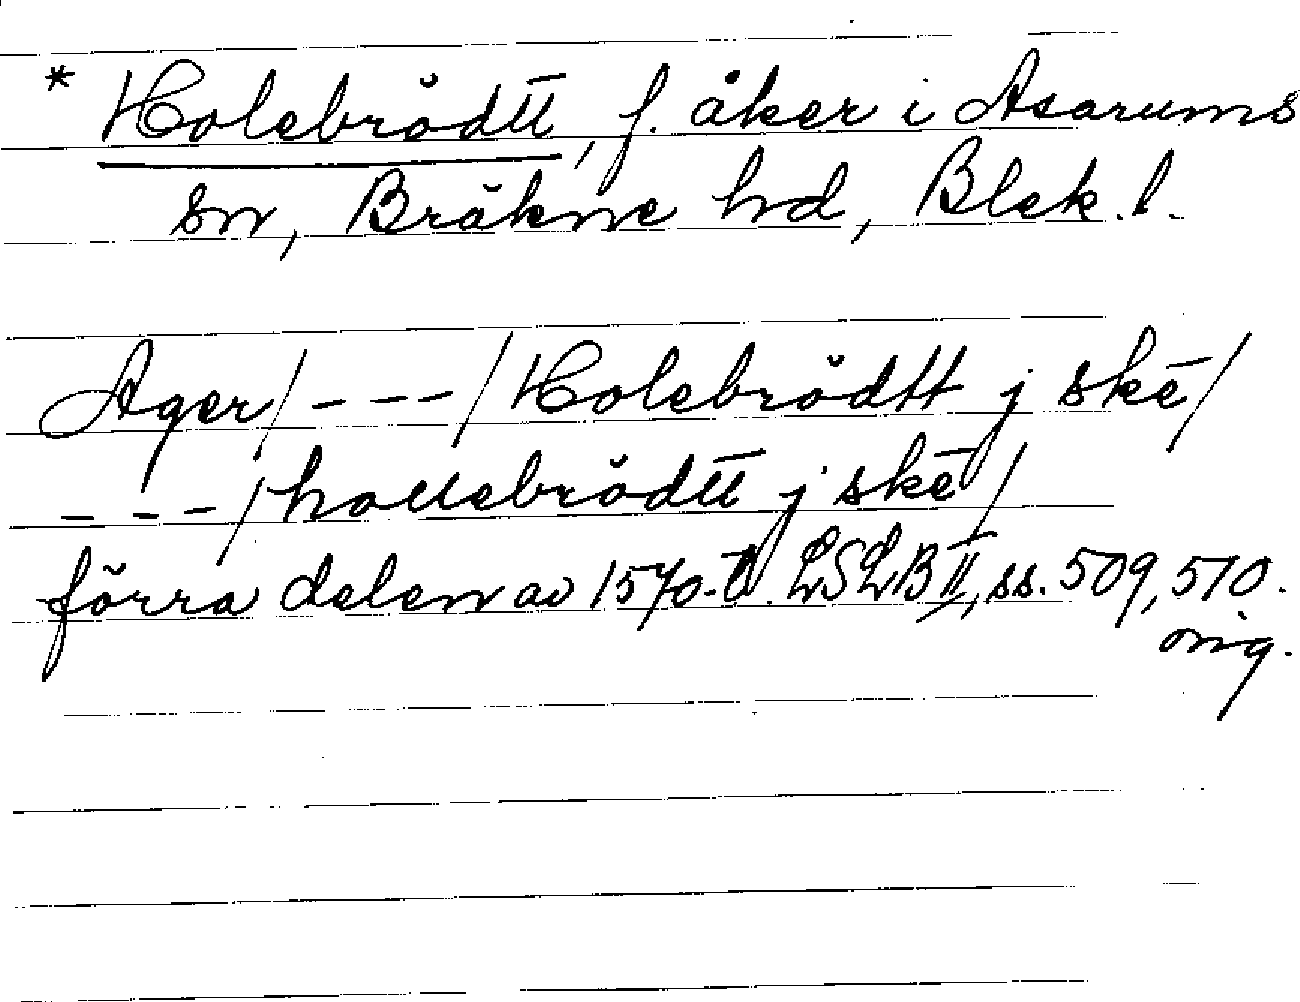 * Holebrödtt, f. åker i Asarums
sn, Bräkne hd, Blek. l.
Ager/ - - - / Holebrödtt j skē /
- - - / hollebrödtt j skē /
förra delen av 1570-t. LSLB II, ss. 509, 510.
orig.